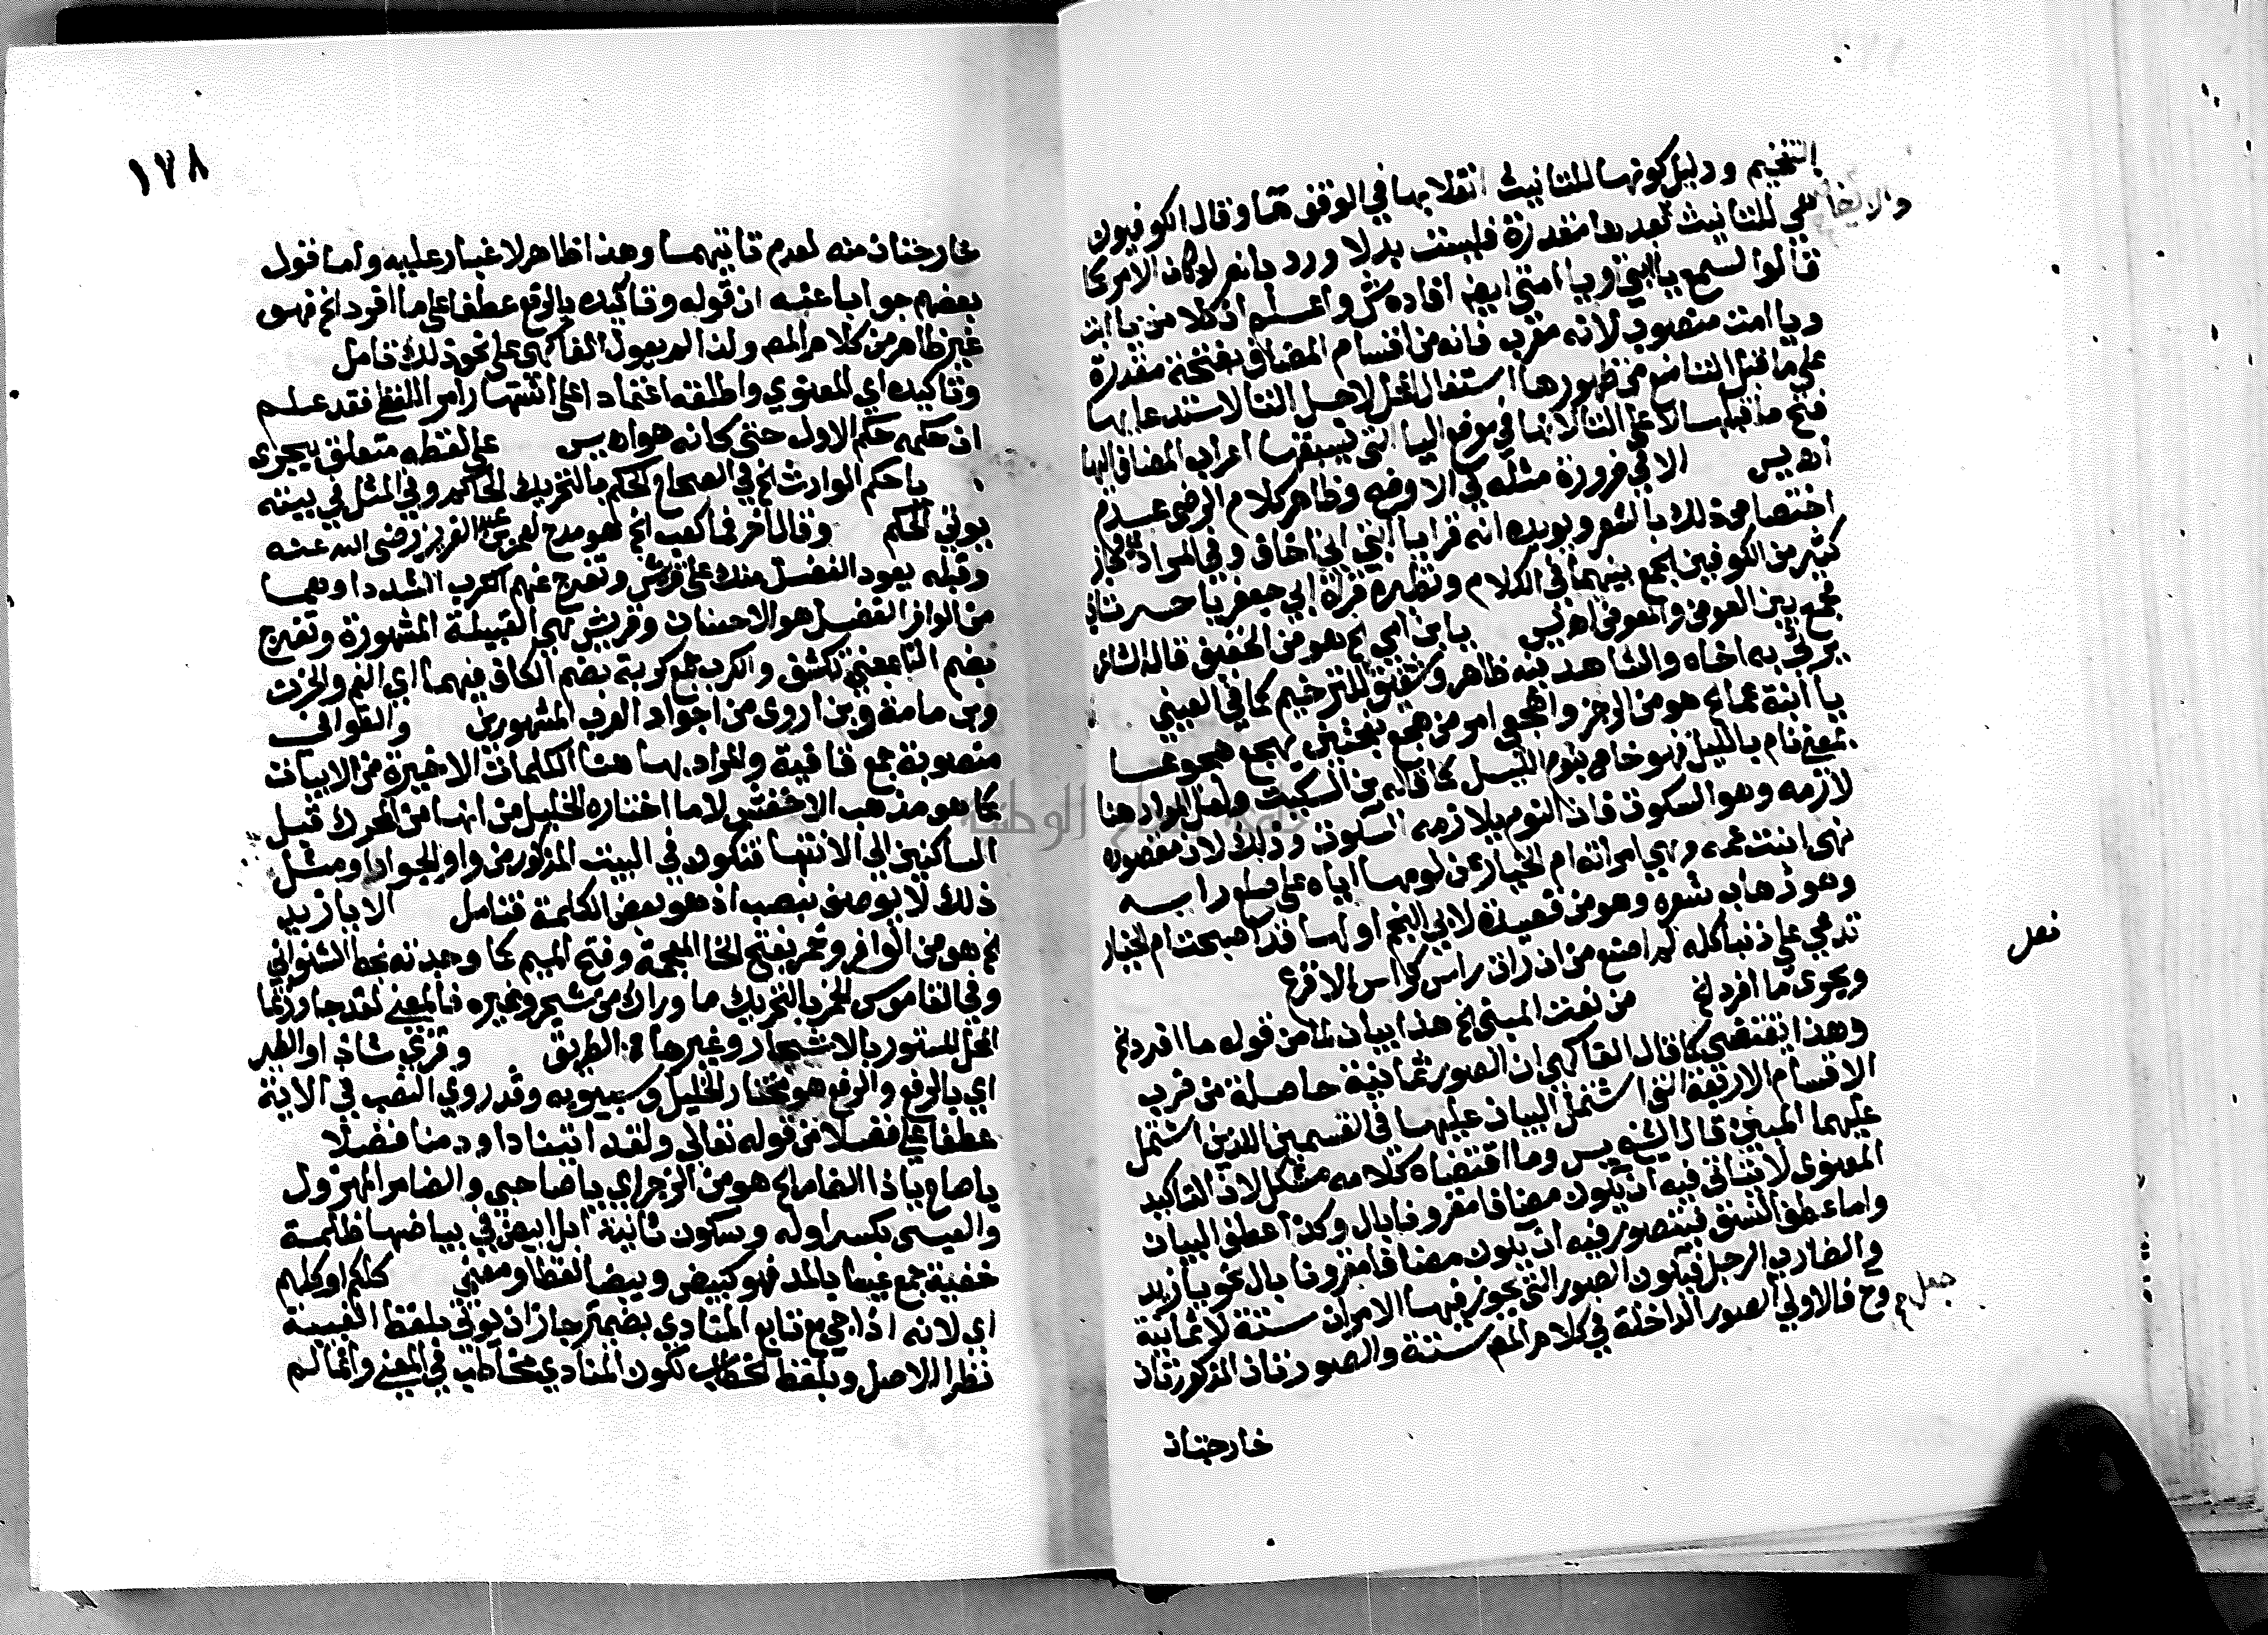 التفخيم ودليل كونها للتانيث انقلابها في الوقف هآ وقال الكوفيون
هي للتانيث بعدها مقدرة فليست بدلا ورد بانه لو كان الامر كما
قالوا لسمع يا ابتي ويا امتي ايضا افاده ش واعلم ان كلا من يا ابت
ويا امت منصوب لانه معرب فانه من اقسام المضاف بفتحة مقدرة
على ما قبل التا منع من ظهورها اشتغال المحل لاجل التا لاستدعايها
فتح ما قبلها لا على التا لانها في موضع اليا التي يسبقها اعراب المضاف اليها
اه يس الا في ضرورة مثله في الاوضح وظاهر كلام الرضي عدم
اختصاص ذلك بالشعر ويويده انه قرا يا ابتي اني اخاف وفي المرادي واجاز
كثير من الكوفيين الجمع بينهما في الكلام ونظيره قراة ابي جعفر يا حسرتاي
فجمع بين العوض والمعوض اه يس يا بن امي الخ هو من الخفيف قاله الشاعر
يرثي به اخاه والشاهد فيه ظاهر وشقيق للترخيم كما في العيني
يا ابنة عما الخ هو من الرجز واهجعي امر من هجع بفتحتين يهجع هجوعا
بمعنى نام بالليل فهو خاص بنوم الليل كما قاله بن السكيت ولعل المراد هنا
لازمه وهو السكون فان النوم يلازمه السكون وذلك لان مقصوده
نهى ابنت عمه وهي امراته ام الخيار عن لومها اياه على صلع راسه
وهو ذهاب شعره وهو من قصيدة لابي النجم اولها قد اصبحت ام الخيار
تدعي على ذنبا كله لم اصنع من ان رات راسي كراس الاقرع
ويجري ما افرد الخ من نعت المبني الخ هذا بيان لما من قوله ما افرد الخ
وهذا يقتضي كما قال الفاكهي ان الصور ثمانية حاصلة من ضرب
الاقسام الاربعة التي اشتمل البيان عليها في القسمين اللذين اشتمل
عليهما المبين قال الشيخ يس وما اقتضاه كلامه مشكل لان التاكيد
المعنوى لا يتاتى فيه ان يكون مضافا مقرونا بال وكذا عطف البيان
واما عطف النسق فيتصور فيه ان يكون مضافا مقرونا بال نحو يا زيد
والضارب الرجل فتكون الصور التي يجوز فيها الامران ستة لا ثمانية
وح فالاولي الصور الداخلة في كلام المص ستة والصورتان المذكورتان
والايضاح
نعل
جعل م
خارجتان
١٧٨
خارجتان منه لعدم تاتيهما وهذا ظاهر لا غبار عليه واما قول
بعضهم جوابا عنه ان قوله وتاكيده بالرفع عطفا على ما افرد الخ فهو
غير ظاهر من كلام المص ولذا لم يعول الفاكهي على نحو ذلك تامل
وتاكيده اي المعنوي واطلقه اعتمادا على اشتهار امر اللفظى فقد علم
ان حكمه حكم الاول حتى كانه هو اه يس على لفظه متعلق بيجرى
يا حكم الوارث الخ في الصحاح الحكم بالتحريك الحاكم وفي المثل في بيته
يوتي الحكم وقال اخر فما كعب الخ هو مدح لعمر بن عبد العزيز رضى الله عنه
وقبله يعود الفضل منك على قريش وتفرج عنهم الكرب الشدادا وهما
من الوافر الفضل هو الاحسان وقريش هي القبيلة المشهورة وتفرج
بضم التا بمعنى تكشف والكرب جمع كربة بضم الكاف فيهما اي الغم والحزن
وبن مامة وبن اروى من اجواد العرب المشهورين والقوافي
منصوبة جمع قافية والمراد بها هنا الكلمات الاخيرة من الابيات
كما هو مذهب الاخفش لا ما اختاره الخليل من انها من المحرك قبل
الساكنين الي الانتها فتكون في البيت المذكور من واو الجوادا ومثل
ذلك لا يوصف بنصب اذ هو بعض الكلمة فتامل الا يا زيد
الخ هو من الوافر وخمر بفتح الخا المعجمة وفتح الميم كما وجدته بخط الشنواني
وفي القاموس الخمر بالتحريك ما وراك من شجر وغيره فالمعنى لقد جاوزتما
المحل المستور بالاشجار وغيرها من الطريق وقري شاذا والطير
اي بالرفع والرفع هو مختار الخليل وسيبويه وقد روي النصب في الاية
عطفا على فضلا من قوله تعالى ولقد اتينا داود منا فضلا
يا صاح يا ذا الضامر الخ هو من الرجز اي يا صاحبي والضامر المهزول
والعيس بكسر اوله وسكون ثانيه ابل البيض في بياضها ظلمة
خفية جمع عيسا بالمد فهو كبيض وبيضا لفظا ومعنى كلكم او كلهم
اي لانه اذا جي مع تابع المنادي بضمير جاز ان يوتي بلفظ الغيبة
نظرا للاصل وبلفظ الخطاب لكون المنادي مخاطب في المعنى وانما لم